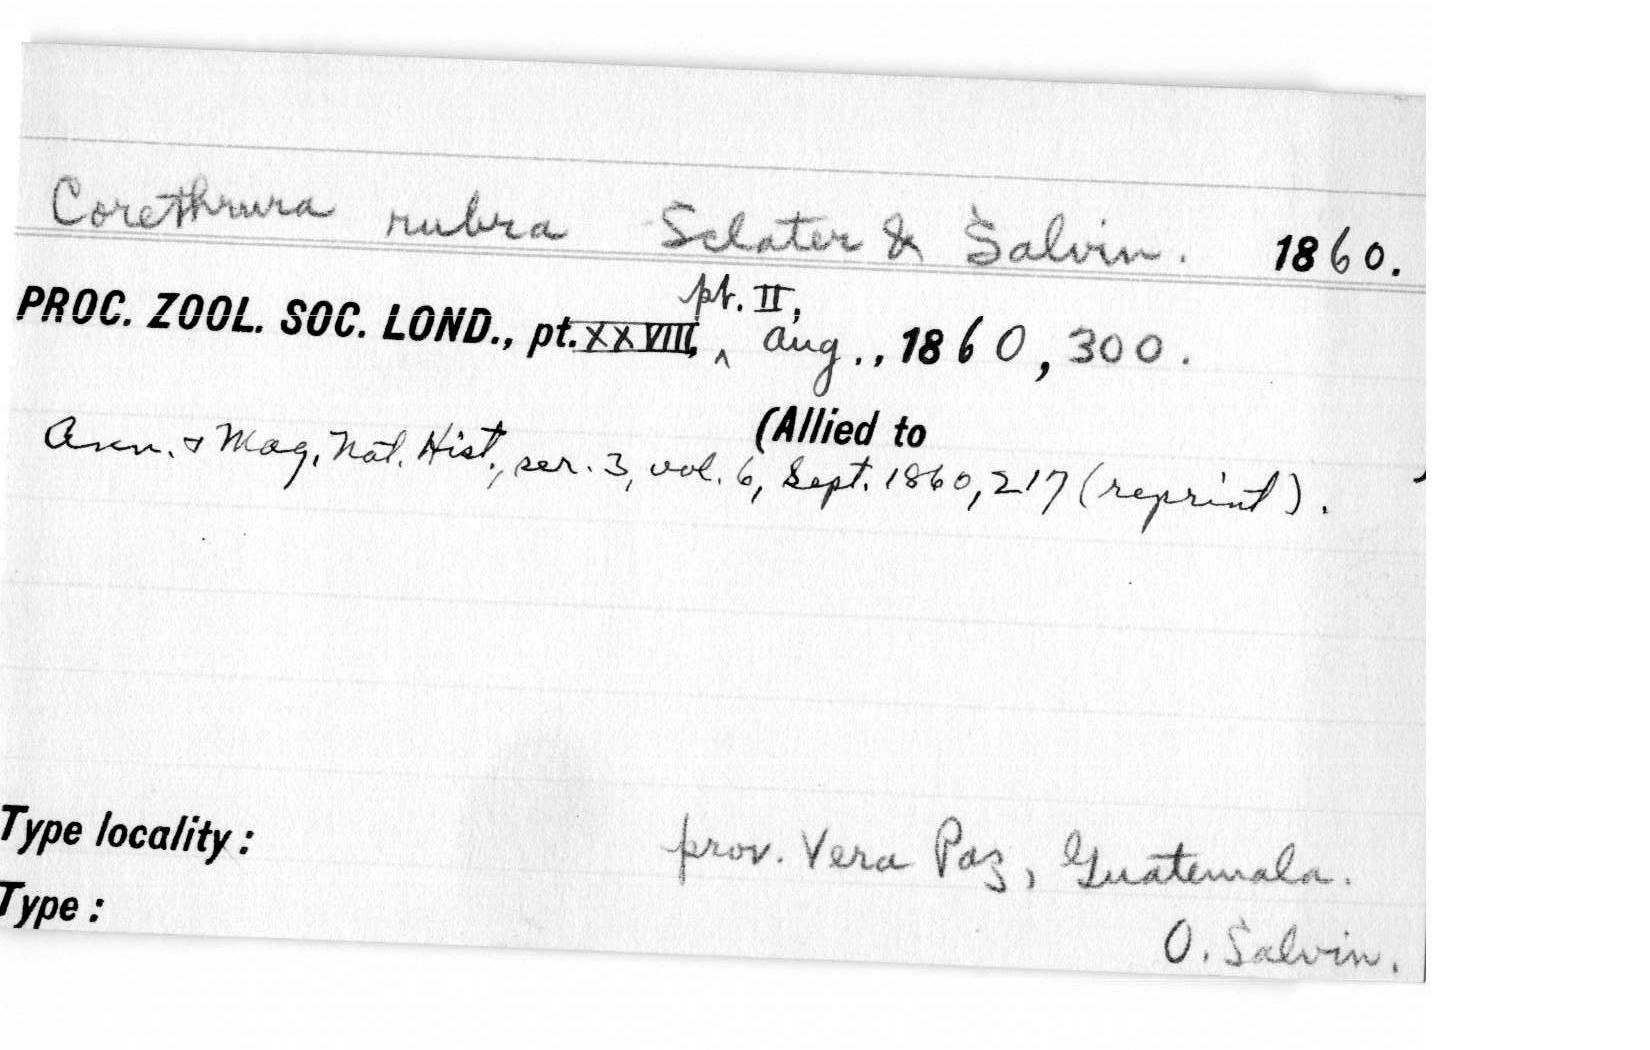 Corethrura rubra Sclater & Salvin. 1860.
pt. II,
PROC. ZOOL. SOC. LOND., pt. XXVIII, ^ Aug., 1860, 300.
(Allied to
Ann. & Mag. Nat. Hist., ser. 3, vol. 6, Sept. 1860, 217 (reprint).
Type locality: prov. Vera Paz, Guatemala.
Type: O. Salvin.